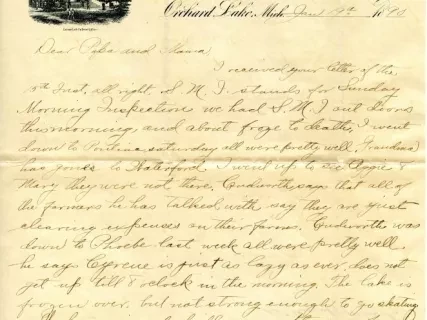 Orchard Lake, Mich. Jan 19th 1890
Dear Papa and Mama
I received your letter of the
5th Inst, all right. S. M. I. stands for Sunday
Morning Inspection we had S. M. I out doors
this morning, and about froze to death, I went
down to Pontiac saturday all were pretty well, Grandma
has gone to Waterford. I went up to see Aggie &
Mary they were not there, Cudworth says that all of
the farmers he has talked with say they are just
clearing expenses on their farms. Cudworth was
down to Phoebe last week all were pretty well.
he says Cyrene is just as lazy as ever, does not
get up till 8 oclock in the morning. The lake is
frozen over, but not strong enough to go skating